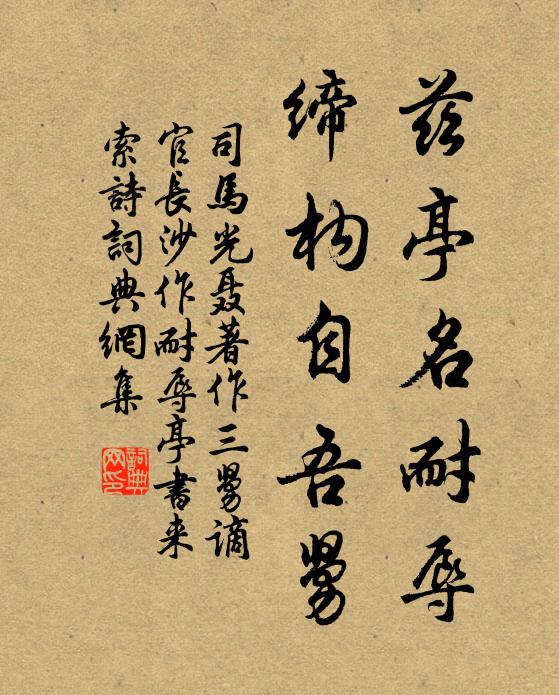 茲亭名耐辱
締构自吾舅
司馬光聂著作三舅謫
官長沙作耐辱亭書来
索詩詞典網集
詞典
网印